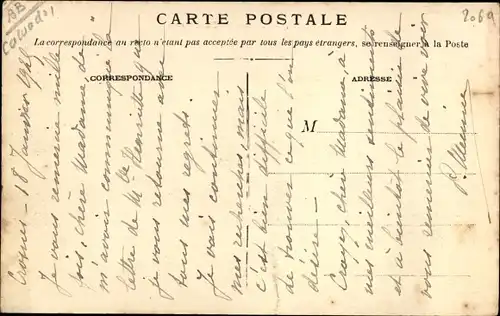 BB
Calvados
2069
CARTE POSTALE
La correspondance au recto n'étant pas acceptée par tous les pays étrangers, se renseigner à la Poste
CORRESPONDANCE
ADRESSE
M
18 Janvier 192
Je vous remercie mille
fois, chère Madame, de
m'avoir communiqué la
lettre de Mlle Henriette que
je vous retourne avec
tous mes regrets.
Je vais continuer
mes recherches, mais
c'est bien difficile
de trouver ce que l'on
désire -
Croyez, chère Madame, à
mes meilleurs sentiments
et à bientôt le plaisir de
vous remercier de vive voix